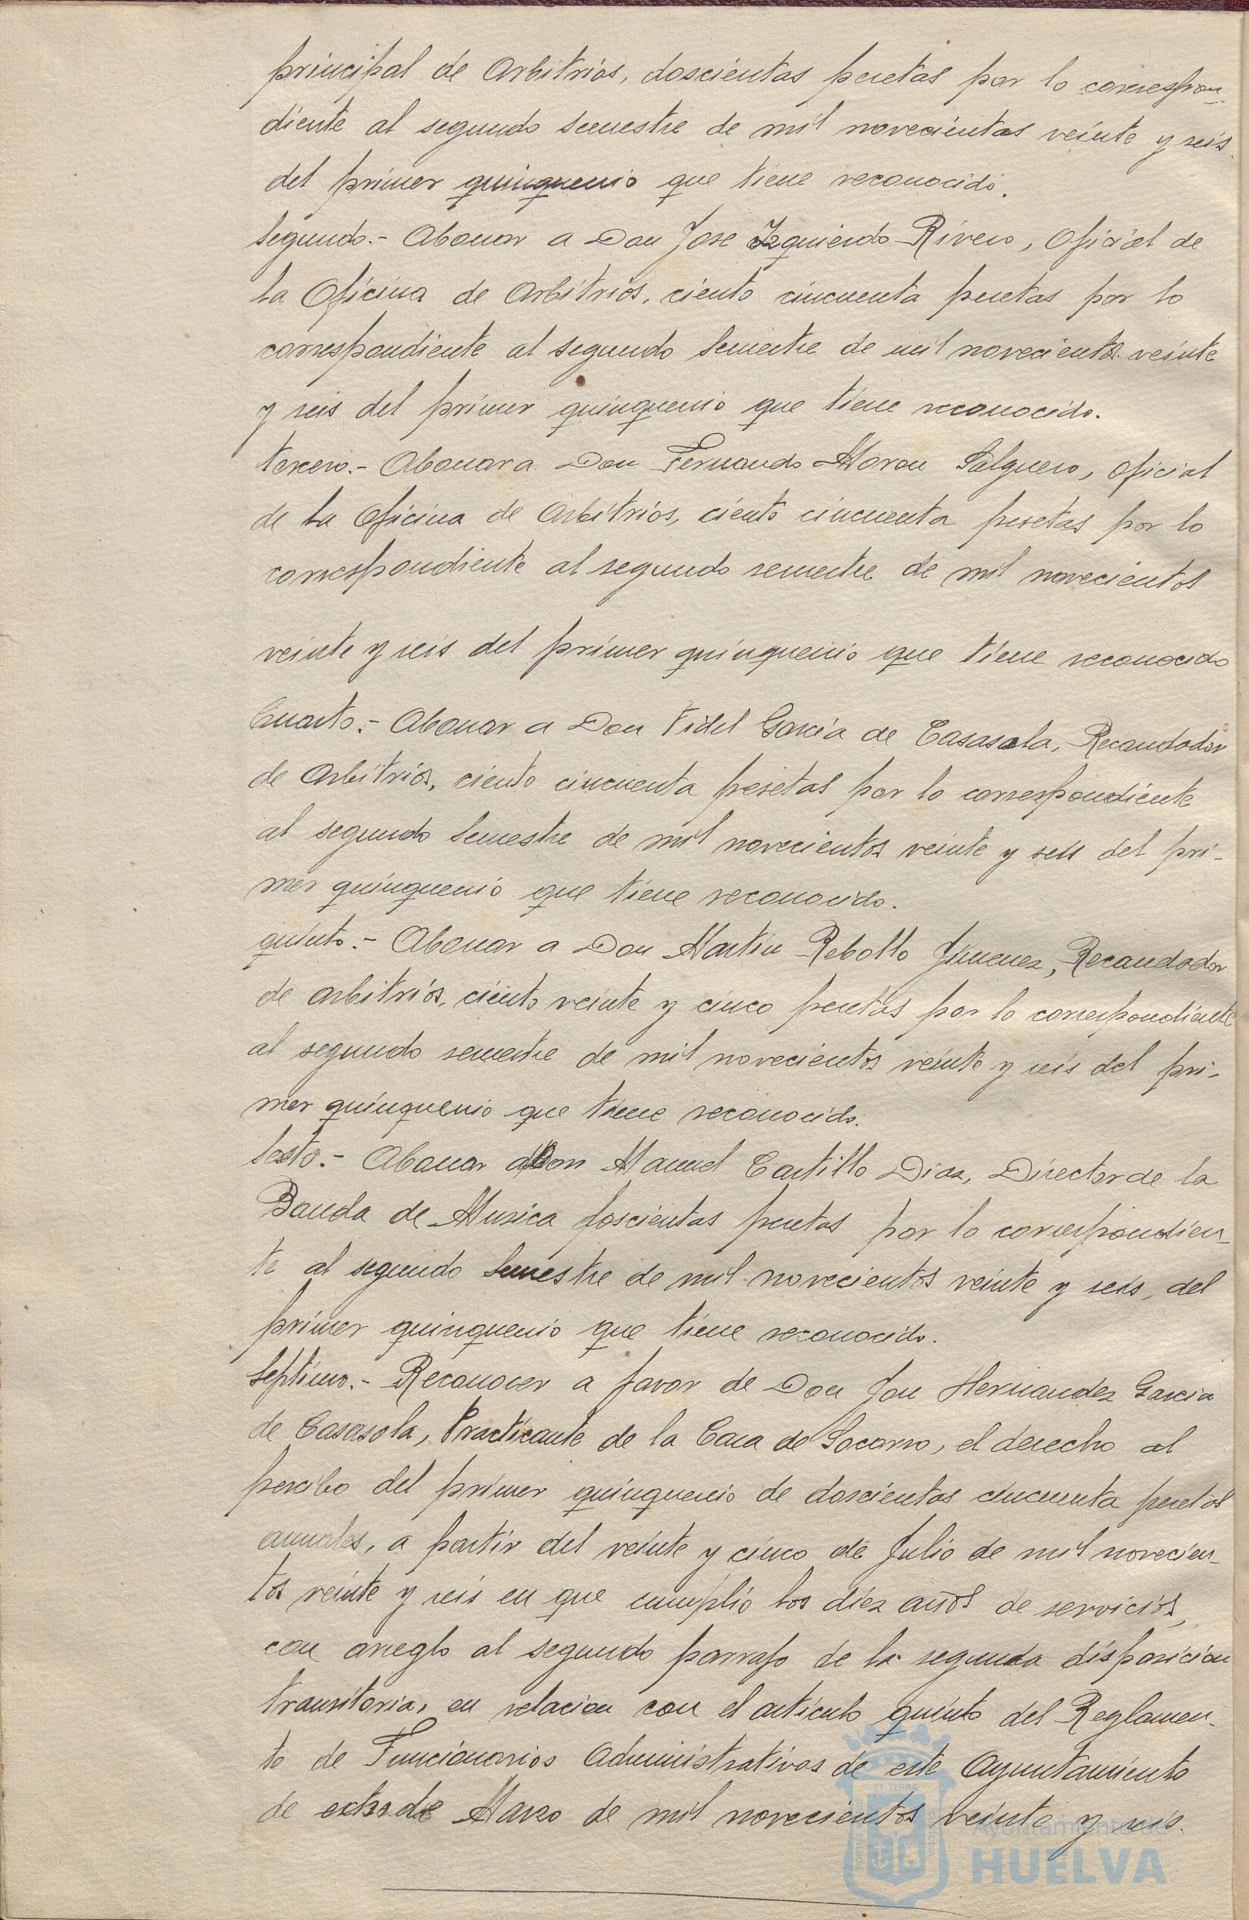 principal de Arbitrios, doscientas pesetas por lo correspon-
diente al segundo semestre de mil novecientos veinte y seis
del primer quinquenio que tiene reconocido.
Segundo.- Abonar a Don Jose Izquierdo Rivero, Oficial de
la Oficina de Arbitrios, ciento cincuenta pesetas por lo
correspondiente al segundo semestre de mil novecientos veinte
y seis del primer quinquenio que tiene reconocido.
tercero.- Abonar a Don Fernando Moron Salguero, Oficial
de la Oficina de Arbitrios, ciento cincuenta pesetas por lo
correspondiente al segundo semestre de mil novecientos
veinte y seis del primer quinquenio que tiene reconocido
Cuarto.- Abonar a Don Fidel Garcia de Casasola, Recaudador
de Arbitrios, ciento cincuenta pesetas por lo correspondiente
al segundo semestre de mil novecientos veinte y seis del pri-
mer quinquenio que tiene reconocido.
quinto.- Abonar a Don Martin Rebollo Jimenez, Recaudador
de arbitrios, ciento veinte y cinco pesetas por lo correspondiente
al segundo semestre de mil novecientos veinte y seis del pri-
mer quinquenio que tiene reconocido.
Sexto.- Abonar a Don Manuel Castillo Diaz, Director de la
Banda de Musica doscientas pesetas por lo correspondien-
te al segundo semestre de mil novecientos veinte y seis, del
primer quinquenio que tiene reconocido.
Septimo.- Reconocer a favor de Don Jose Hernandez Garcia
de Casasola, Practicante de la Casa de Socorro, el derecho al
percibo del primer quinquenio de doscientas cincuenta pesetas
anuales, a partir del veinte y cinco de Julio de mil novecien-
tos veinte y seis en que cumplio los diez años de servicios,
con arreglo al segundo parrafo de la segunda disposicion
transitoria, en relacion con el articulo quinto del Reglamen-
to de Funcionarios Administrativos de este Ayuntamiento
de ocho de Marzo de mil novecientos veinte y seis.
Ayuntamiento de
HUELVA